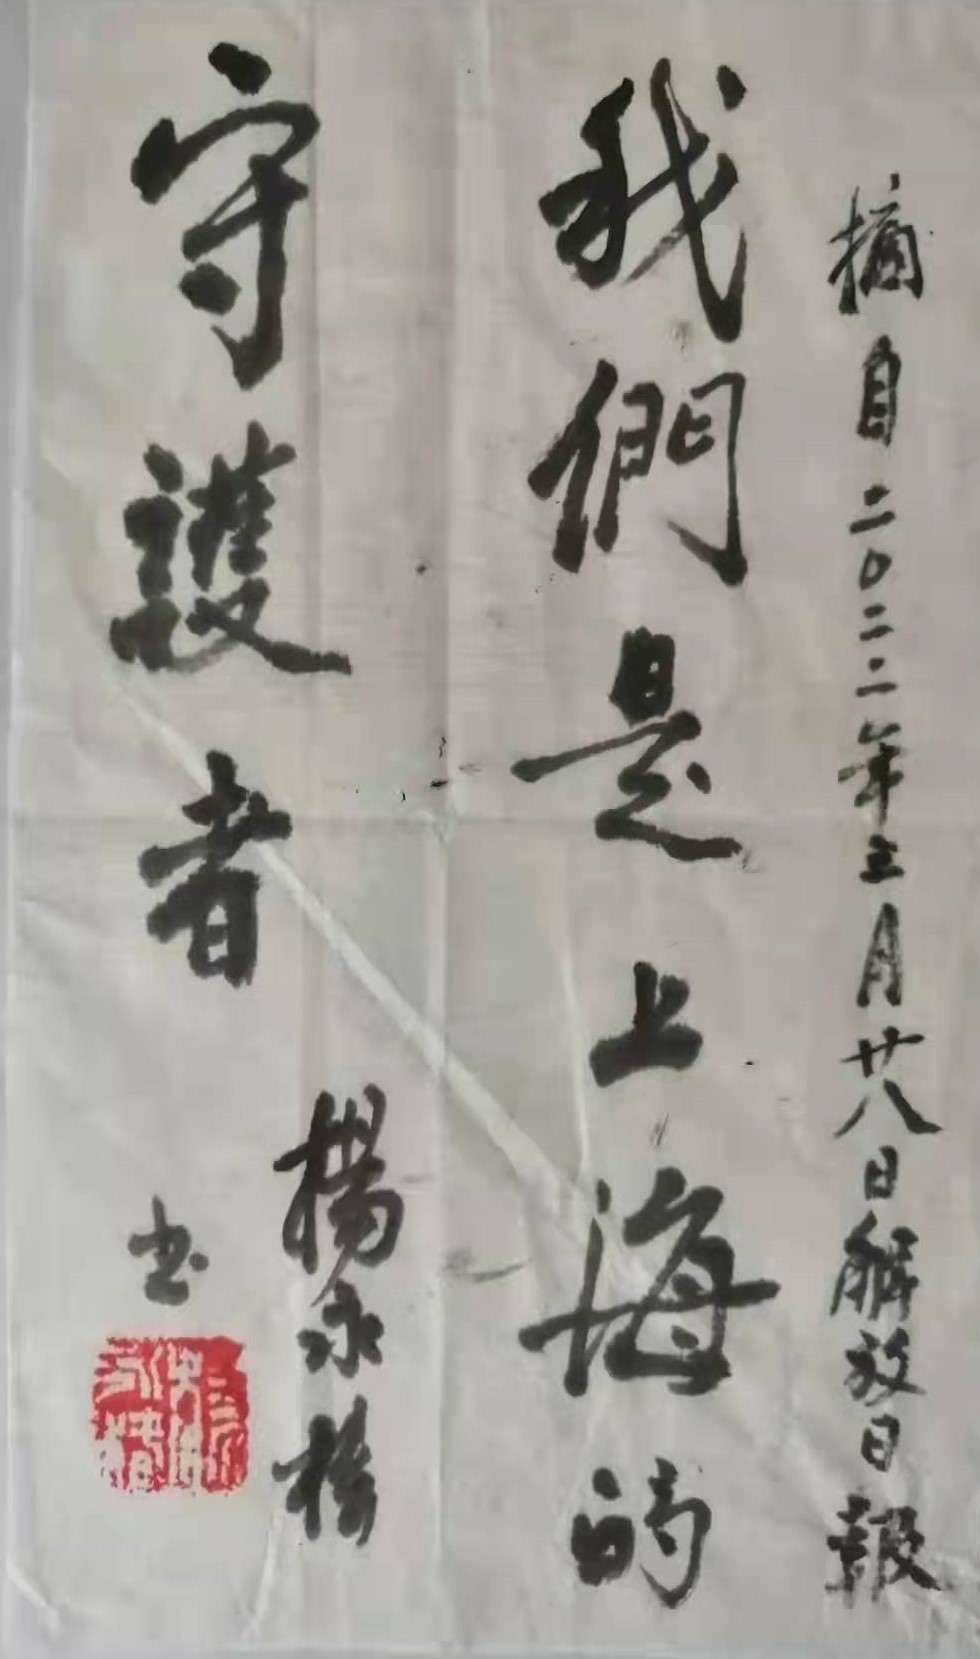 摘自二〇二二年三月廿八日解放日報
我們是上海的
守護者
楊永橋
书